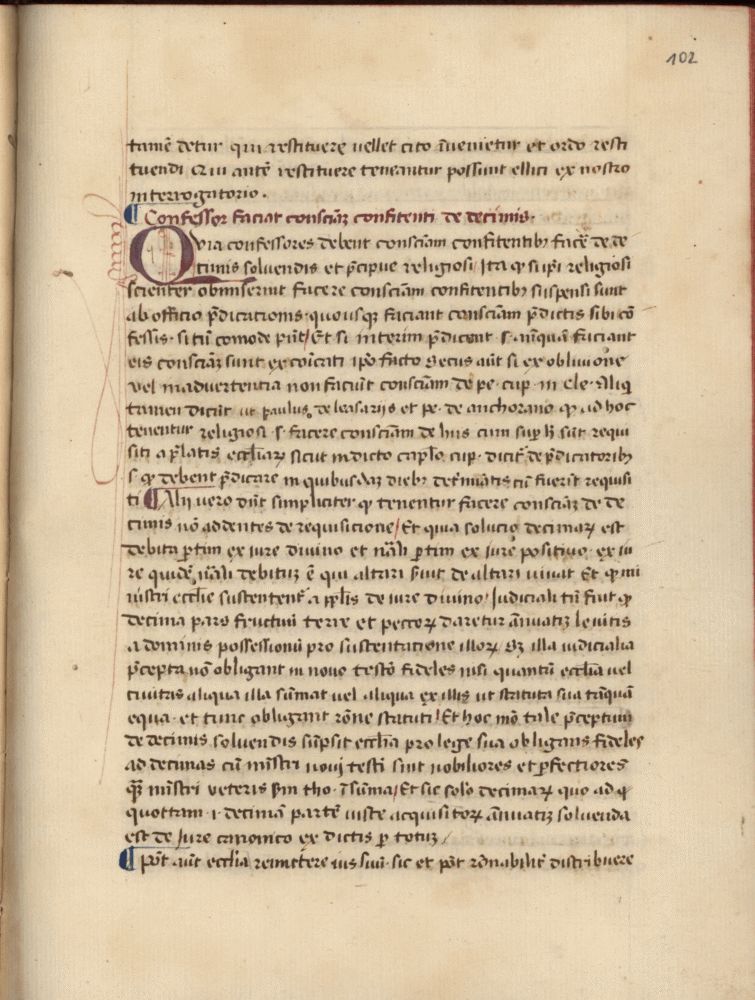 102
tamē detur qui restituere vellet cito īvenietur et ordo resti
tuendi Qui autē restituere teneantur possunt elici ex nostro
interrogatorio.
¶ Confessor faciat consciāꝫ confitenti de decimis.
QVia confessores debent consciam confitentibꝫ facē de de
cimis solvendis et p̄cipue religiosi Ita ꝙ sup̄i religiosi
scienter obmiserint facere consciam confitentibꝫ suspensi sunt
ab officio p̄dicationis · quousqꝫ faciant consciam p̄dictis sibi cō
fessis · si tn̄ comode p̄nt / Et si interim p̄dicent s. anquā faciant
eis consciāꝫ sunt excoīcati ip̄o facto Secus aūt si ex oblivione
vel inadvertentia non faciūt consciam de pe. cup. in cle. Aliq̄
tamen dicūt ut paulus de leasarijs et pe. de anchorano ꝙ ad hoc
tenentur religiosi · s · facere consciam de hiis cum sup̄ h̄ sūt requi
siti a p̄latis eccliaꝝ sicut in dicto cap̄lo cup. dicit̄ de p̄dicatoribꝫ
s. ꝙ debent p̄dicare in quibusdaꝫ diebꝫ det̄minatis cū fuerīt requisi
ti ¶ Alij vero dn̄t simpliciter ꝙ tenentur facere consciāꝫ de de
cimis nō addentes de requisicione / Et quia solucio decimaꝝ est
debita ꝑtim ex iure divino et nāli ꝑtim ex iure positivo · ex iu
re quidē nāli debituꝫ ē qui altari s̄viūt de altari vivāt Et ꝙ mi
nistri ecclie sustentent̄ a pp̄lis de iure divino / Judiciali tn̄ fuit ꝙ
decima pars fructuū terre et pecorꝝ daretur ānuatiꝫ levitis
a dominis possessionū pro sustentatione illorꝝ Sꝫ illa iudicialia
p̄cepta nō obligant in novo testō fideles nisi quantū ecclia vel
civitas aliqua illa sūmat vel aliqua ex illis ut statuta sua tanquā
equa · et tunc obligant rōne statuti / Et hoc mō tale p̄ceptum
de decimis solvendis sūpsit ecclia pro lege sua obligans fideles
ad decimas cū mīstri novi testi sint nobiliores et ꝑfectiores
qꝫ mīstri veteris s̄m tho. ī sūma / Et sic solō decimaꝝ quo ad ꝙ
quottam · i · decimā partē iuste acquisitorꝝ ānuatiꝫ solvenda
est de Jure canonico ex dictis ꝑ totuꝫ /
¶ Pōt aūt ecclia remittere ius suū · sic et pōt rōnabilit̄ distribuere